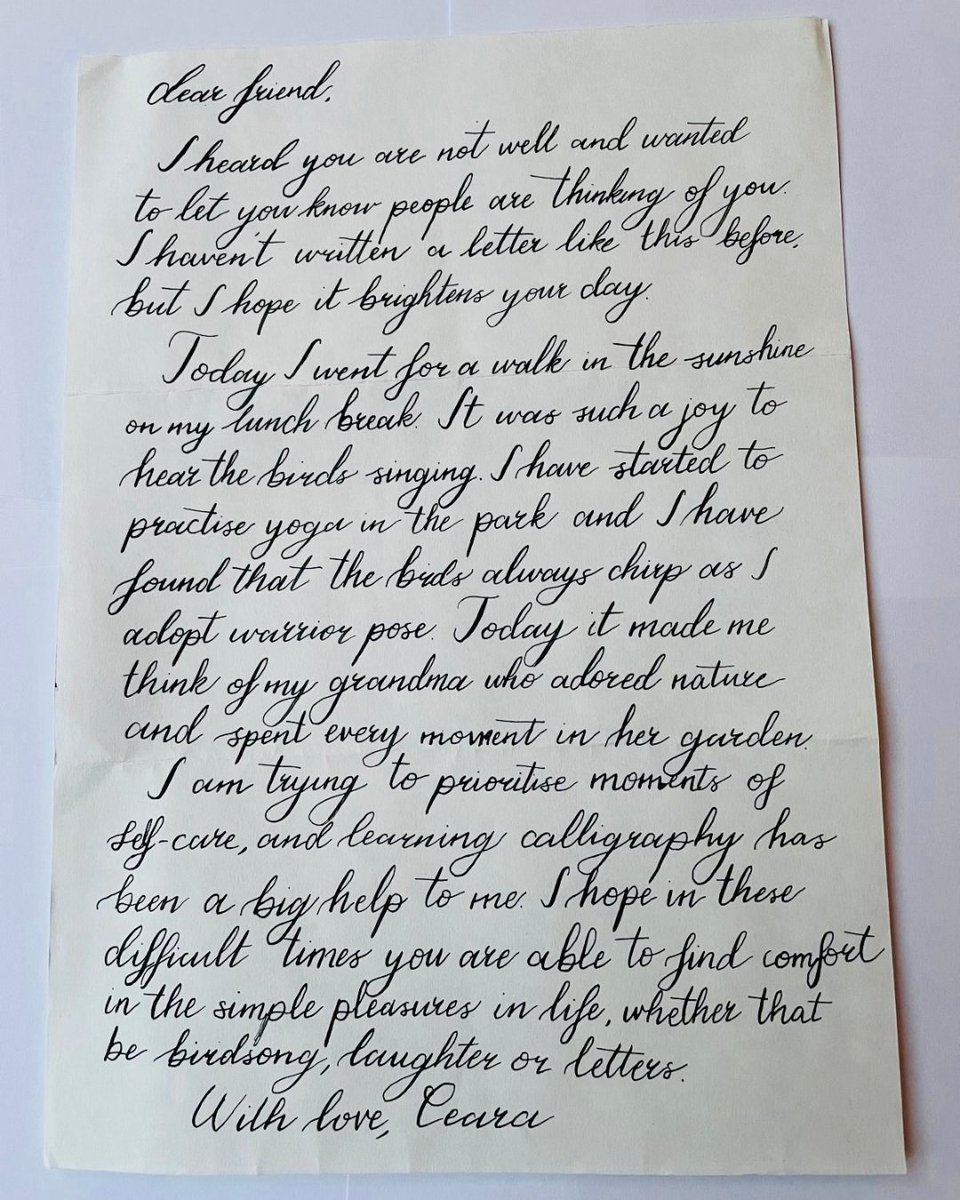 dear friend,
I heard you are not well and wanted
to let you know people are thinking of you.
I haven't written a letter like this before,
but I hope it brightens your day.
Today I went for a walk in the sunshine
on my lunch break. It was such a joy to
hear the birds singing. I have started to
practise yoga in the park and I have
found that the birds always chirp as I
adopt warrior pose. Today it made me
think of my grandma who adored nature
and spent every moment in her garden.
I am trying to prioritise moments of
self-care, and learning calligraphy has
been a big help to me. I hope in these
difficult times you are able to find comfort
in the simple pleasures in life, whether that
be birdsong, laughter or letters.
With love, Ceara